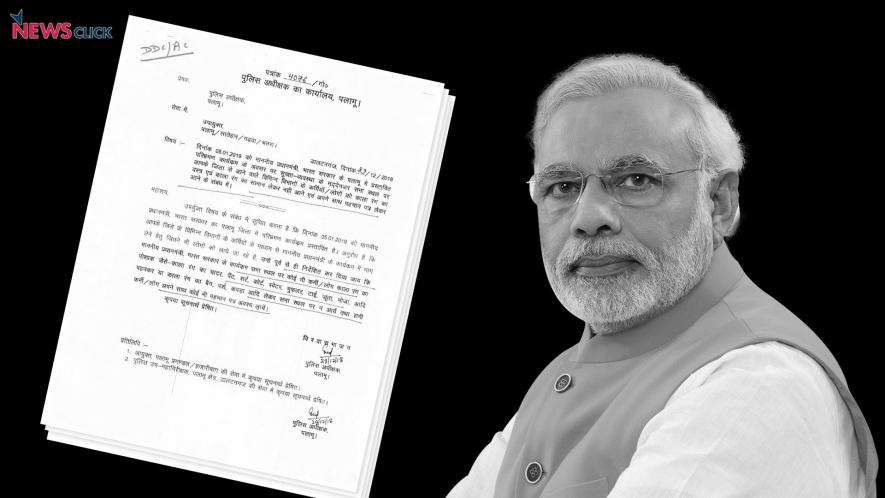 NEWSCLICK
DDC/AC
पत्रांक 4076 /गो०
पुलिस अधीक्षक का कार्यालय, पलामू।
प्रेषक,
पुलिस अधीक्षक,
पलामू।
सेवा में,
उपायुक्त,
पलामू/लातेहार/गढवा/चतरा।
डालटनगंज, दिनांक 29/12/2018
विषय :- दिनांक 05.01.2019 को माननीय प्रधानमंत्री, भारत सरकार के पलामू में प्रस्तावित
परिभ्रमण कार्यक्रम के अवसर पर सुरक्षा-व्यवस्था के मद्देनजर सभा स्थल पर
आपके जिला से आने वाले विभिन्न विभागों के कर्मियों/लोगों को काला रंग का
वस्त्र एवं काला रंग का सामान लेकर नहीं आने एवं अपने साथ पहचान पत्र लेकर
आने के संबंध में।
महाशय,
उपर्युक्त विषय के संबंध में सूचित करना है कि दिनांक 05.01.2019 को माननीय
प्रधानमंत्री, भारत सरकार का पलामू जिला में परिभ्रमण कार्यक्रम प्रस्तावित है। अनुरोध है कि
आपके जिले के विभिन्न विभागों के कर्मियों के माध्यम से माननीय प्रधानमंत्री के कार्यक्रम में भाग
लेने हेतु जितने भी लोगों को लाये जा रहे है, उन्हे पूर्व से ही निर्देशित कर दिया जाय कि
माननीय प्रधानमंत्री, भारत सरकार के कार्यक्रम सभा स्थल पर कोई भी कर्मी/लोग काला रंग का
पोशाक जैसे-काला रंग का चादर, पैंट, शर्ट, कोर्ट, स्वेटर, मुफलर, टाई, जूता, मोजा, आदि
पहनकर या काला रंग का बैग, पर्स, कपड़ा आदि लेकर सभा स्थल पर न आयें तथा सभी
कर्मी/लोग अपने साथ कोई भी पहचान पत्र अवश्य लायें।
कृपया सूचनार्थ प्रेषित।
वि श्वा स भा ज न
29/12/18
पुलिस अधीक्षक,
पलामू।
प्रतिलिपि :-
1. आयुक्त, पलामू प्रमण्डल/हजारीबाग की सेवा में कृपया सूचनार्थ प्रेषित।
2. पुलिस उप-महानिरीक्षक, पलामू क्षेत्र, डालटनगंज की सेवा में कृपया सूचनार्थ प्रेषित।
29/12/18
पुलिस अधीक्षक,
पलामू।